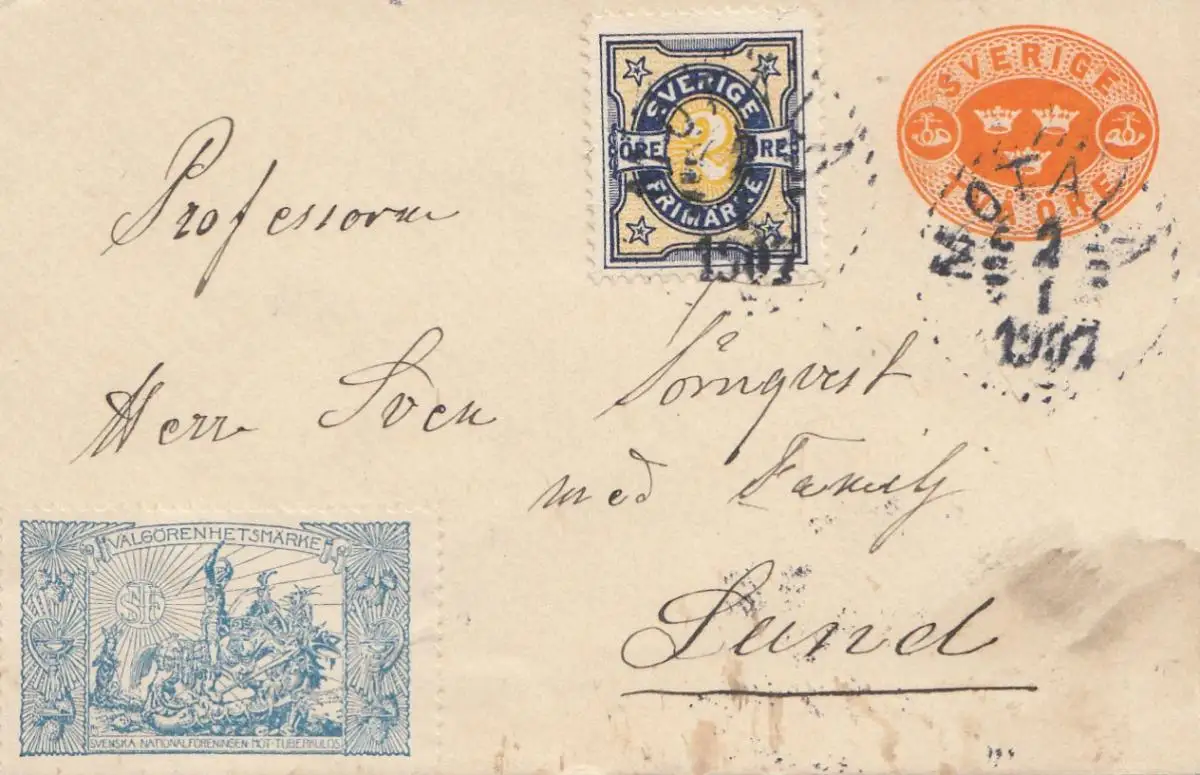 SVERIGE
ÖRE 2 ÖRE
FRIMÄRKE
1907
SVERIGE
TVÅ ÖRE
MOTALA
2
1
1907
Professoren
Herr Sven Sörnqvist
med Familj
Lund
VÄLGÖRENHETSMÄRKE
SVENSKA NATIONALFÖRENINGEN MOT TUBERKULOS